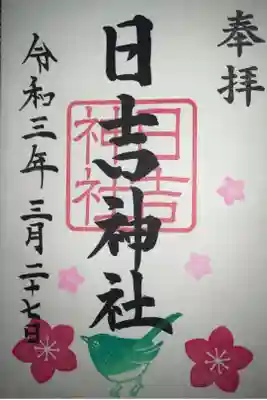 奉拝
日吉神社
日吉
神社
令和三年 三月 二十七日